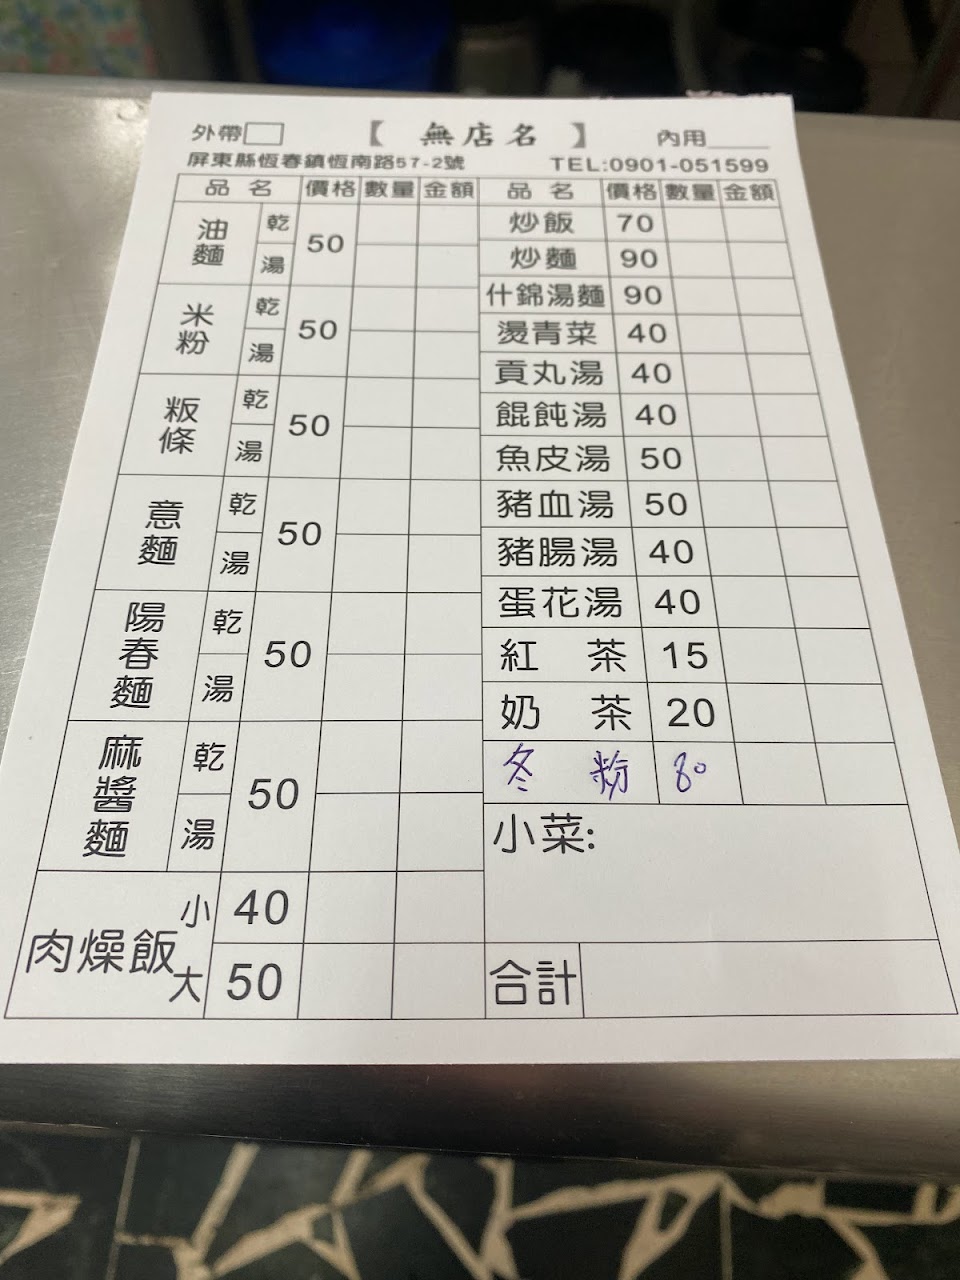 外帶 【 無店名 】 內用
屏東縣恆春鎮恆南路57-2號 TEL:0901-051599
品 名 價格 數量 金額
油麵 乾 湯 50
米粉 乾 湯 50
粄條 乾 湯 50
意麵 乾 湯 50
陽春麵 乾 湯 50
麻醬麵 乾 湯 50
肉燥飯 小 40
大 50
品 名 價格 數量 金額
炒飯 70
炒麵 90
什錦湯麵 90
燙青菜 40
貢丸湯 40
餛飩湯 40
魚皮湯 50
豬血湯 50
豬腸湯 40
蛋花湯 40
紅 茶 15
奶 茶 20
冬 粉 80
小菜:
合計